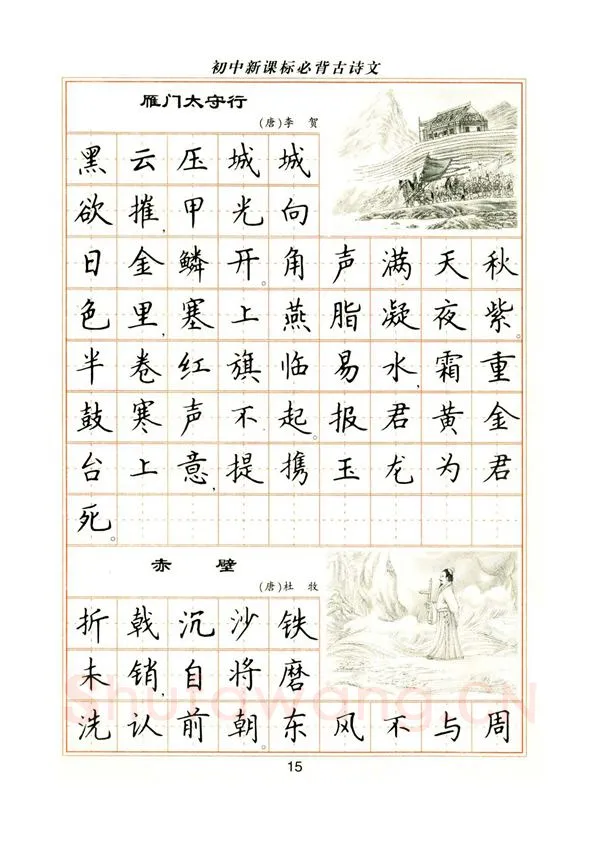 初中新课标必背古诗文
雁门太守行
(唐)李 贺
黑云压城城
欲摧,甲光向
日金鳞开。角声满天秋
色里,塞上燕脂凝夜紫。
半卷红旗临易水,霜重
鼓寒声不起。报君黄金
台上意,提携玉龙为君
死。
赤 壁
(唐)杜 牧
折戟沉沙铁
未销,自将磨
洗认前朝。东风不与周
Shufawang.CN
15